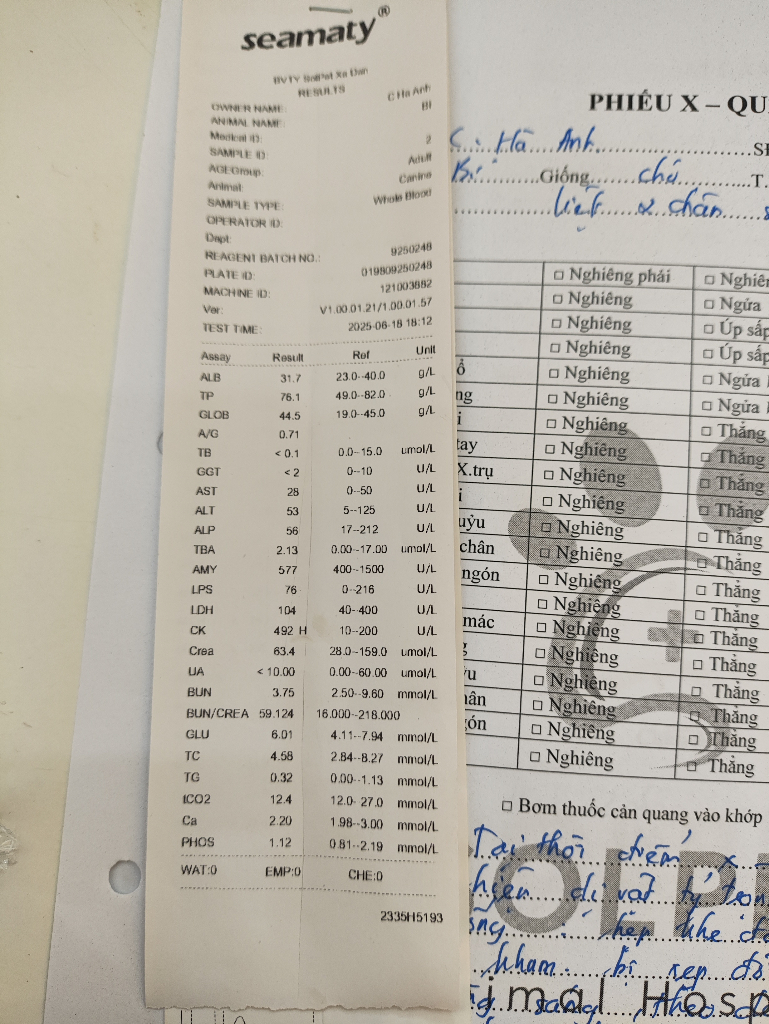 seamaty®
RESULTS
OWNER NAME: C Ha Anh
ANIMAL NAME: BI
Medical ID:
SAMPLE ID: 2
AGEGroup: Adult
Animal: Canine
SAMPLE TYPE: Whole Blood
OPERATOR ID:
Dept:
REAGENT BATCH NO.: 9250248
PLATE ID: 019809250248
MACHINE ID: 121003882
Ver: V1.00.01.21/1.00.01.57
TEST TIME: 2025-06-18 18:12
Assay Result Ref Unit
ALB 31.7 23.0--40.0 g/L
TP 76.1 49.0--82.0 g/L
GLOB 44.5 19.0--45.0 g/L
A/G 0.71
TB < 0.1 0.0--15.0 umol/L
GGT < 2 0--10 U/L
AST 28 0--50 U/L
ALT 53 5--125 U/L
ALP 56 17--212 U/L
TBA 2.13 0.00--17.00 umol/L
AMY 577 400--1500 U/L
LPS 76 0--216 U/L
LDH 104 40--400 U/L
CK 492 H 10--200 U/L
Crea 63.4 28.0--159.0 umol/L
UA < 10.00 0.00--60.00 umol/L
BUN 3.75 2.50--9.60 mmol/L
BUN/CREA 59.124 16.000--218.000
GLU 6.01 4.11--7.94 mmol/L
TC 4.58 2.84--8.27 mmol/L
TG 0.32 0.00--1.13 mmol/L
tCO2 12.4 12.0--27.0 mmol/L
Ca 2.20 1.98--3.00 mmol/L
PHOS 1.12 0.81--2.19 mmol/L
WAT:0 EMP:0 CHE:0
2335H5193
PHIẾU X – QU
C. Hà Anh
Giống chó T.
liệt 2 chân s
□ Nghiêng phải □ Nghiên
□ Nghiêng □ Ngửa
□ Nghiêng □ Úp sấp
□ Nghiêng □ Úp sấp
ổ □ Nghiêng □ Ngửa
ng □ Nghiêng □ Ngửa
i □ Nghiêng □ Thẳng
tay □ Nghiêng □ Thẳng
X.trụ □ Nghiêng □ Thẳng
i □ Nghiêng □ Thẳng
uỷu □ Nghiêng □ Thẳng
chân □ Nghiêng □ Thẳng
ngón □ Nghiêng □ Thẳng
□ Nghiêng □ Thẳng
mác □ Nghiêng □ Thẳng
□ Nghiêng □ Thẳng
□ Nghiêng □ Thẳng
hân □ Nghiêng □ Thẳng
gón □ Nghiêng □ Thẳng
□ Nghiêng □ Thẳng
□ Bơm thuốc cản quang vào khớp
Tại thời điểm x –
hiện dị vật tỷ trọn
hẹp khe
imal Hosp